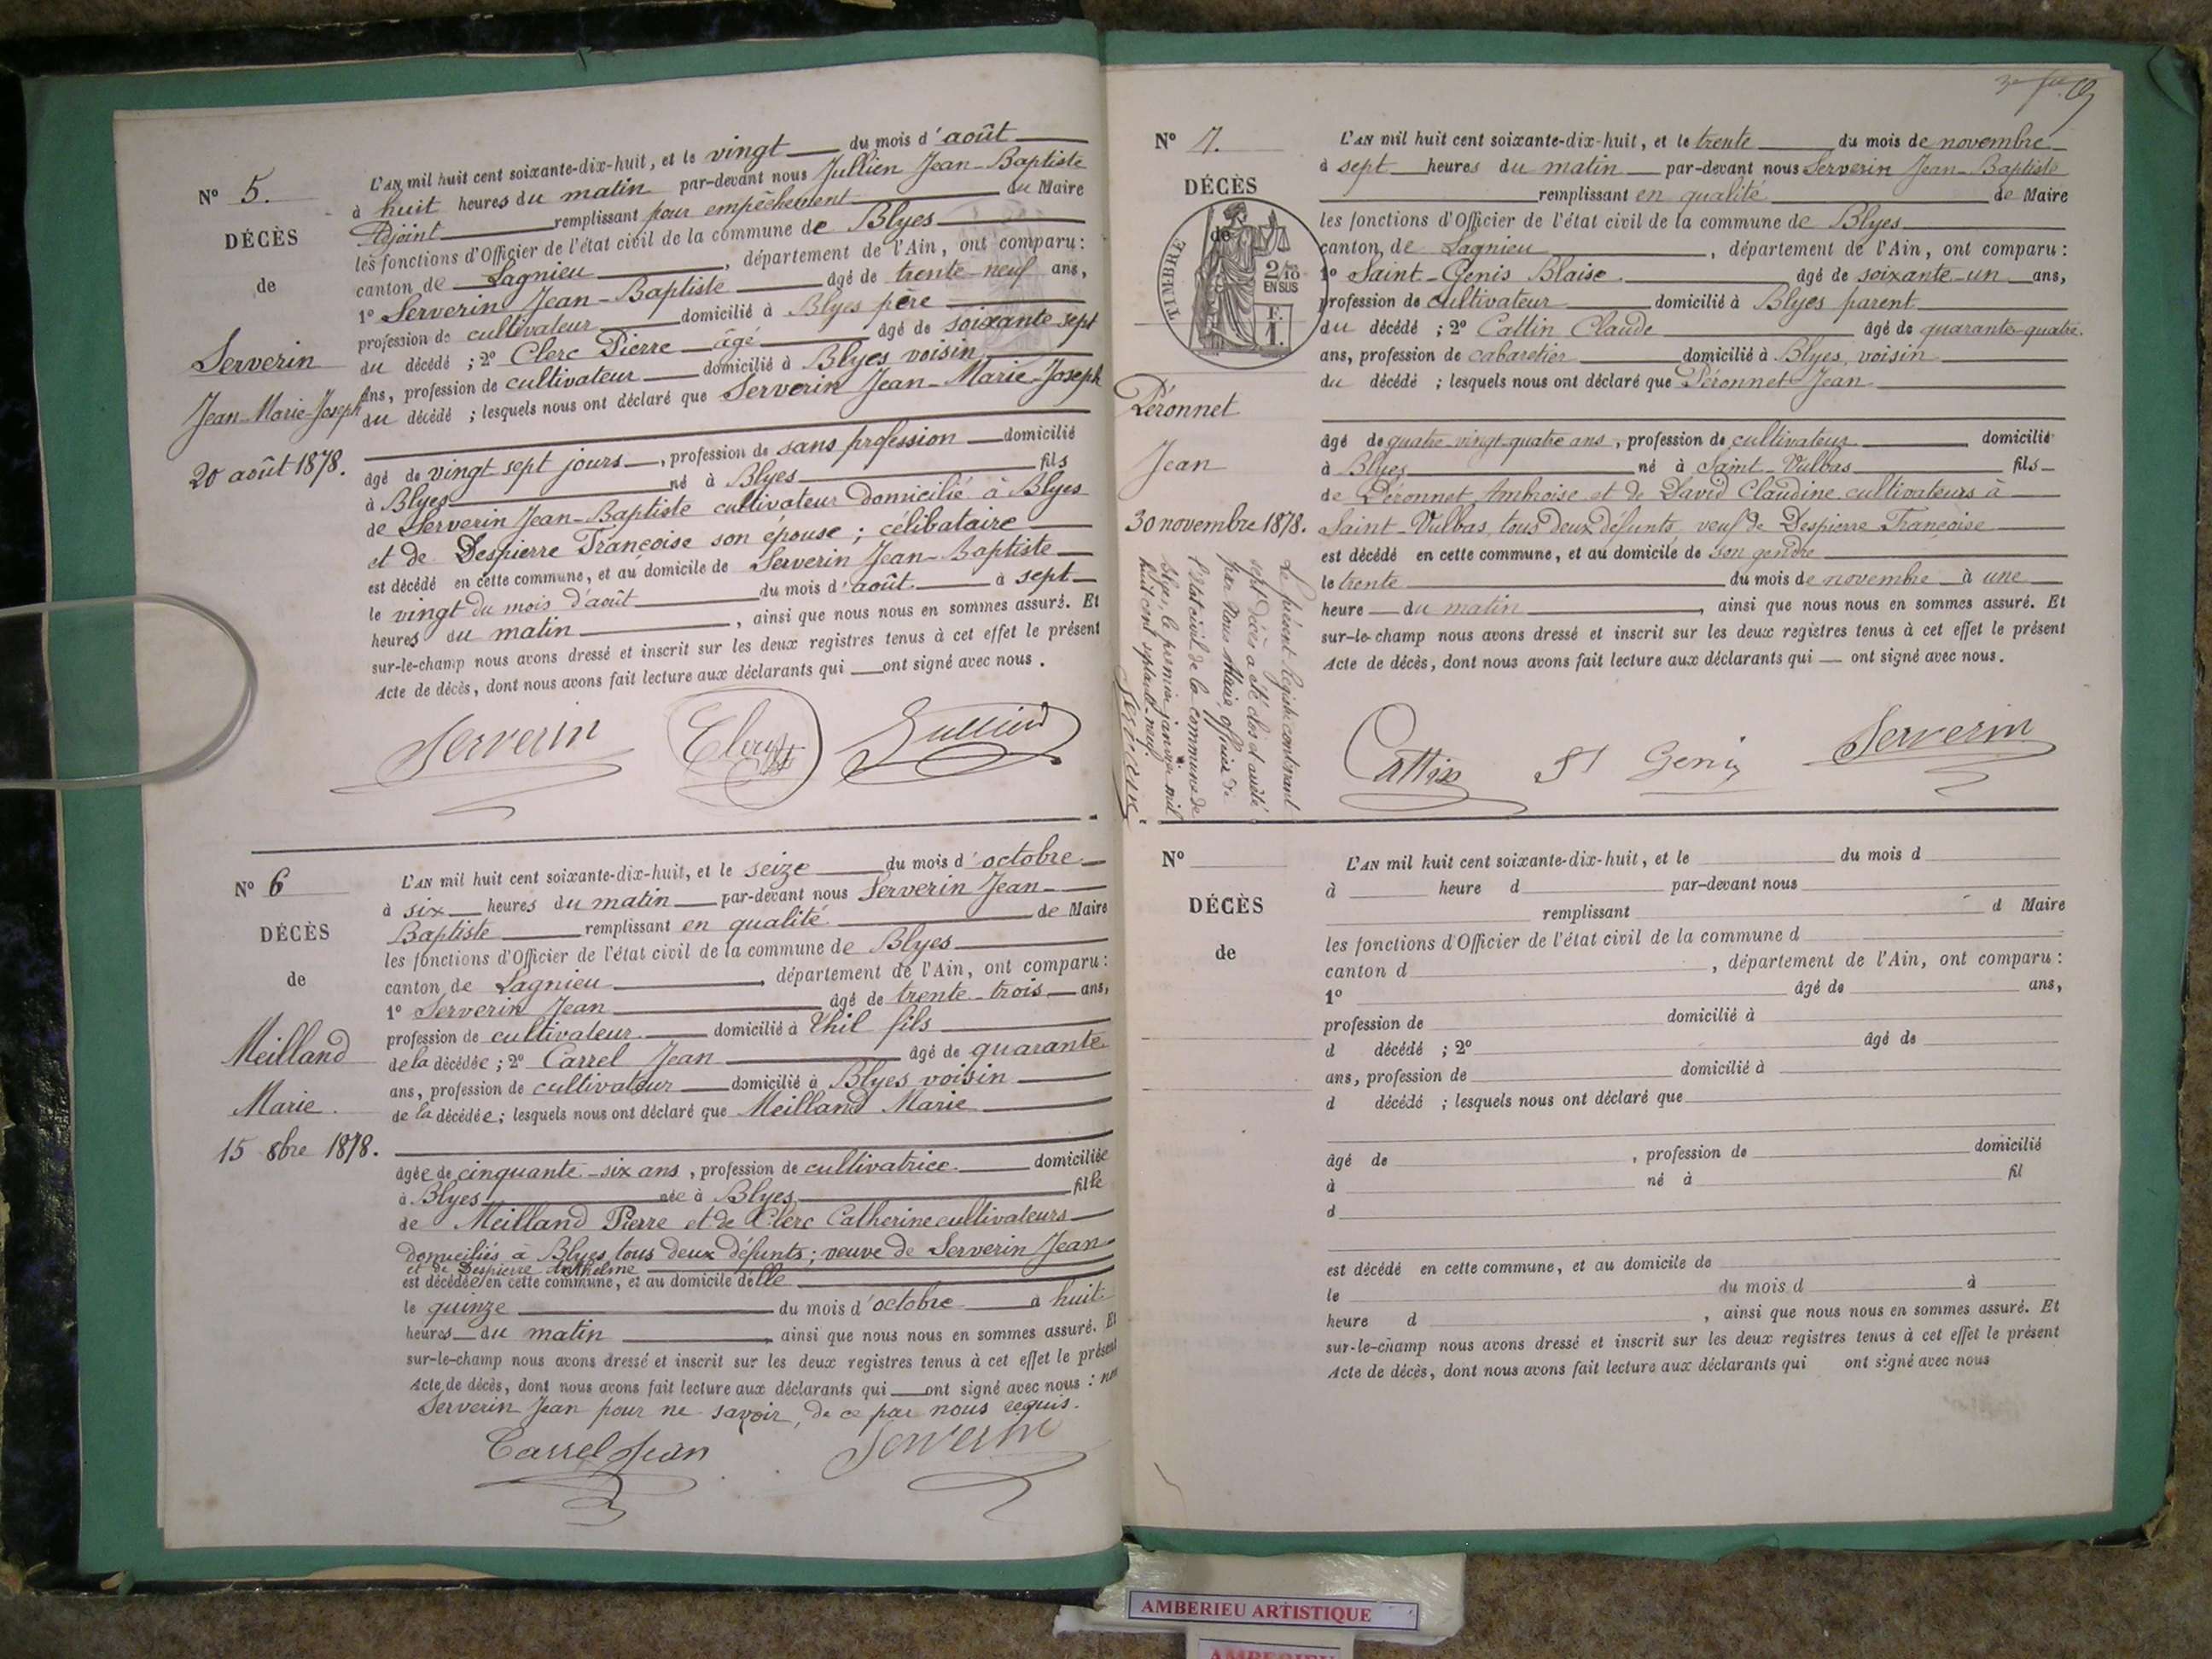 N° 5.
DÉCÈS
de
Serverin
Jean-Marie-Joseph
20 août 1878.
L'AN mil huit cent soixante-dix-huit, et le vingt du mois d'août
à huit heures du matin par-devant nous Jullien Jean-Baptiste
Adjoint remplissant pour empêchement du Maire
les fonctions d'Officier de l'état civil de la commune de Blyes
canton de Lagnieu, département de l'Ain, ont comparu :
1° Serverin Jean-Baptiste âgé de trente-neuf ans,
profession de cultivateur domicilié à Blyes père
du décédé ; 2° Clerc Pierre âgé âgé de soixante sept
ans, profession de cultivateur domicilié à Blyes voisin
du décédé ; lesquels nous ont déclaré que Serverin Jean-Marie-Joseph
âgé de vingt sept jours, profession de sans profession domicilié
à Blyes né à Blyes fils
de Serverin Jean-Baptiste cultivateur domicilié à Blyes
et de Despierre Françoise son épouse ; célibataire
est décédé en cette commune, et au domicile de Serverin Jean-Baptiste
le vingt du mois d'août du mois d'août à sept
heures du matin, ainsi que nous nous en sommes assuré. Et
sur-le-champ nous avons dressé et inscrit sur les deux registres tenus à cet effet le présent
Acte de décès, dont nous avons fait lecture aux déclarants qui ont signé avec nous.
Serverin Clerc Jullien
N° 6
DÉCÈS
de
Meilland
Marie.
15 8bre 1878.
L'AN mil huit cent soixante-dix-huit, et le seize du mois d'octobre
à six heures du matin par-devant nous Serverin Jean-
Baptiste remplissant en qualité de Maire
les fonctions d'Officier de l'état civil de la commune de Blyes
canton de Lagnieu, département de l'Ain, ont comparu :
1° Serverin Jean âgé de trente-trois ans,
profession de cultivateur domicilié à Thil fils
de la décédée ; 2° Carrel Jean âgé de quarante
ans, profession de cultivateur domicilié à Blyes voisin
de la décédée ; lesquels nous ont déclaré que Meilland Marie
âgée de cinquante-six ans, profession de cultivatrice domiciliée
à Blyes née à Blyes fille
de Meilland Pierre et de Clerc Catherine cultivateurs
domiciliés à Blyes tous deux défunts ; veuve de Serverin Jean
et de Despierre Anthelme
est décédée en cette commune, et au domicile d'elle
le quinze du mois d'octobre à huit
heures du matin, ainsi que nous nous en sommes assuré. Et
sur-le-champ nous avons dressé et inscrit sur les deux registres tenus à cet effet le présent
Acte de décès, dont nous avons fait lecture aux déclarants qui ont signé avec nous : non
Serverin Jean pour ne savoir, de ce par nous requis.
Carrel Jean Serverin
N° 7.
DÉCÈS
de
TIMBRE
2/10
EN SUS
F.
1.
Péronnet
Jean
30 novembre 1878.
Le présent Registre contenant
sept décès a été clos et arrêté
par Nous Maire, officier de
l'état civil de la commune de
Blyes, le premier janvier mil
huit cent septante-neuf.
Serverin
L'AN mil huit cent soixante-dix-huit, et le trente du mois de novembre
à sept heures du matin par-devant nous Serverin Jean-Baptiste
remplissant en qualité de Maire
les fonctions d'Officier de l'état civil de la commune de Blyes
canton de Lagnieu, département de l'Ain, ont comparu :
1° Saint-Genis Blaise âgé de soixante-un ans,
profession de cultivateur domicilié à Blyes parent
du décédé ; 2° Cattin Claude âgé de quarante-quatre
ans, profession de cabaretier domicilié à Blyes, voisin
du décédé ; lesquels nous ont déclaré que Péronnet Jean
âgé de quatre-vingt-quatre ans, profession de cultivateur domicilié
à Blyes né à Saint-Vulbas fils
de Péronnet Ambroise et de David Claudine cultivateurs à
Saint-Vulbas, tous deux défunts, veuf de Despierre Françoise
est décédé en cette commune, et au domicile de son gendre
le trente du mois de novembre à une
heure du matin, ainsi que nous nous en sommes assuré. Et
sur-le-champ nous avons dressé et inscrit sur les deux registres tenus à cet effet le présent
Acte de décès, dont nous avons fait lecture aux déclarants qui ont signé avec nous.
Cattin St Genis Serverin
N°
DÉCÈS
de
L'AN mil huit cent soixante-dix-huit, et le du mois d
à heure d par-devant nous
remplissant d Maire
les fonctions d'Officier de l'état civil de la commune d
canton d , département de l'Ain, ont comparu :
1° âgé de ans,
profession de domicilié à
d décédé ; 2° âgé de
ans, profession de domicilié à
d décédé ; lesquels nous ont déclaré que
âgé de , profession de domicilié
à né à fil
d
est décédé en cette commune, et au domicile de
le du mois d à
heure d , ainsi que nous nous en sommes assuré. Et
sur-le-champ nous avons dressé et inscrit sur les deux registres tenus à cet effet le présent
Acte de décès, dont nous avons fait lecture aux déclarants qui ont signé avec nous
AMBERIEU ARTISTIQUE
AMBERIEU